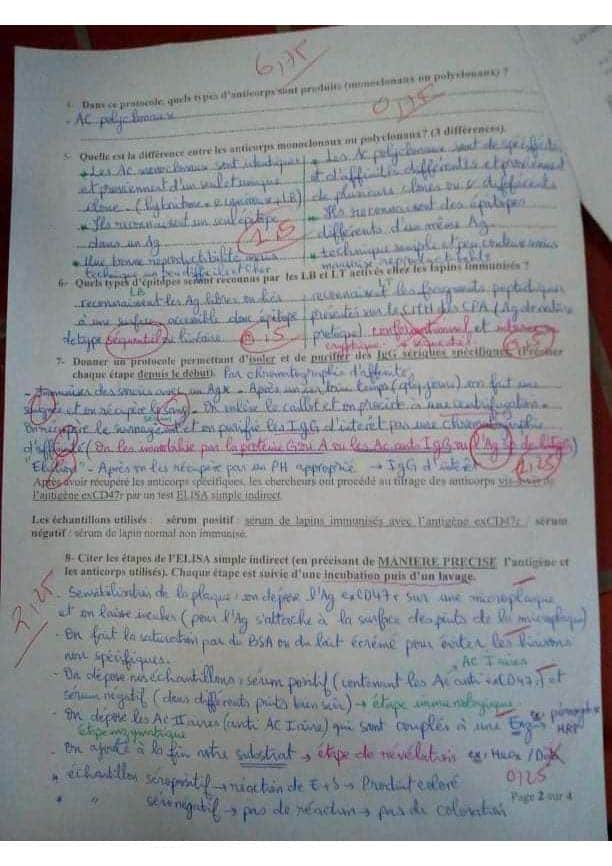 6,75
4- Dans ce protocole, quels types d'anticorps sont produits (monoclonaux ou polyclonaux) ?
- AC polyclonaux
0,75
5- Quelle est la différence entre les anticorps monoclonaux ou polyclonaux? (3 différences).
* Les AC monoclonaux sont identiques
et proviennent d'un seul et unique
clone (hybridome = + LB)
* Ils reconnaissent un seul épitope
dans un Ag
* Une bonne reproductibilité mais
technique un peu difficile et cher
* Les Ac polyclonaux sont de spécificité
et d'affinités différentes et proviennent
de plusieurs clones différents
* Ils reconnaissent des épitopes
différents d'un même Ag
* technique simple et peu couteuse mais
mauvaise reproductibilité
1,5
6- Quels types d'épitopes seront reconnus par les LB et LT activés chez les lapins immunisés ?
LB
reconnaissent les Ag libres ou liés
à une surface accessible donc épitope
de type séquentiel ou linéaire
0,5
LT
reconnaissent les fragments peptidiques
présentés sur le CMH des CPA / Ag de nature
protéique conformationnel et
séquentiel
0,5
7- Donner un protocole permettant d'isoler et de purifier des IgG sériques spécifiques (Préciser
chaque étape depuis le début). Par chromatographie d'affinité
- Immuniser des souris avec un Agx - Après un certain temps (qlq jours) on fait une
saignée et on récupère le sang - On enlève le caillot et on procède à une centrifugation -
On récupère le surnageant et on purifie les IgG d'intérêt par une chromatographie
d'affinité (On les immobilise par la protéine G ou A ou les Ac anti IgG ou l'Ag de l'IgG)
"Elution" - Après on les récupère par un PH approprié → IgG d'intérêt
0,25
Après avoir récupéré les anticorps spécifiques, les chercheurs ont procédé au titrage des anticorps vis-à-vis de
l'antigène exCD47r par un test ELISA simple indirect.
Les échantillons utilisés : sérum positif : sérum de lapins immunisés avec l'antigène exCD47r / sérum
négatif : sérum de lapin normal non immunisé.
8- Citer les étapes de l'ELISA simple indirect (en précisant de MANIERE PRECISE l'antigène et
les anticorps utilisés). Chaque étape est suivie d'une incubation puis d'un lavage.
2,25
- Sensibilisation de la plaque : on dépose l'Ag exCD47r sur une microplaque
et on laisse incuber (pour l'Ag s'attache à la surface des puits de la microplaque)
- On fait la saturation par du BSA ou du lait écrémé pour éviter les liaisons
non spécifiques.
AC Iaires
- On dépose nos échantillons : sérum positif (contenant les Ac anti exCD47r) et
sérum négatif (dans différents puits bien sûr) → étape immunologique
- On dépose les Ac IIaires (anti AC Iaire) qui sont couplés à une Enz ex peroxydase
HRP
Etape enzymatique
- On ajoute à la fin notre substrat → étape de révélation ex: H2O2 /
0,25
* échantillon séropositif → réaction de E+S → Produit coloré
* " séronégatif → pas de réaction → pas de coloration
Page 2 sur 4